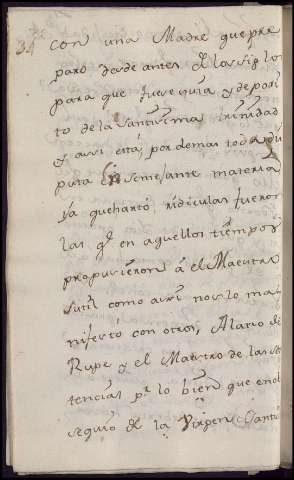 con una Madre que pre
paró desde antes d los siglos
para que fuere guia, y deposi
to de la Santissima trinidad
y assi está, por demas toda dis
puta En semejante materia
ya que harto ridiculas fueron
las q en aquellos tiempos
propusieron á el Maestro
sutil como assi nos lo ma
nifestó con otros, Alano de
Rupe y el Maestro de las se
tencias pr lo bien que en ob
sequio d la Virgen Santi